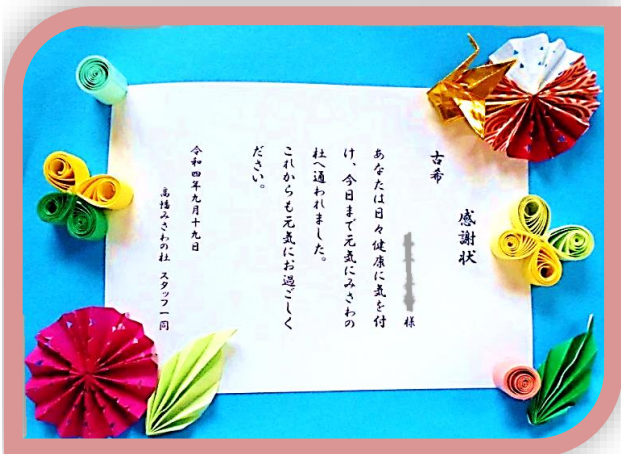 感謝状
古希
様
あなたは日々健康に気を付
け、今日まで元気にみさわの
杜へ通われました。
これからも元気にお過ごしく
ださい。
令和四年九月十九日
高幡みさわの杜 スタッフ一同